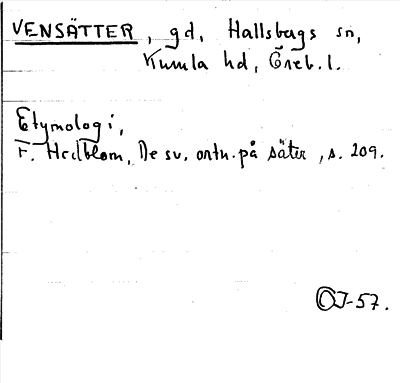 VENSÄTTER, gd, Hallsbergs sn,
Kumla hd, Öreb. l.
Etymologi,
F. Hedblom, De sv. ortn. på säter, s. 209.
OJ-57.